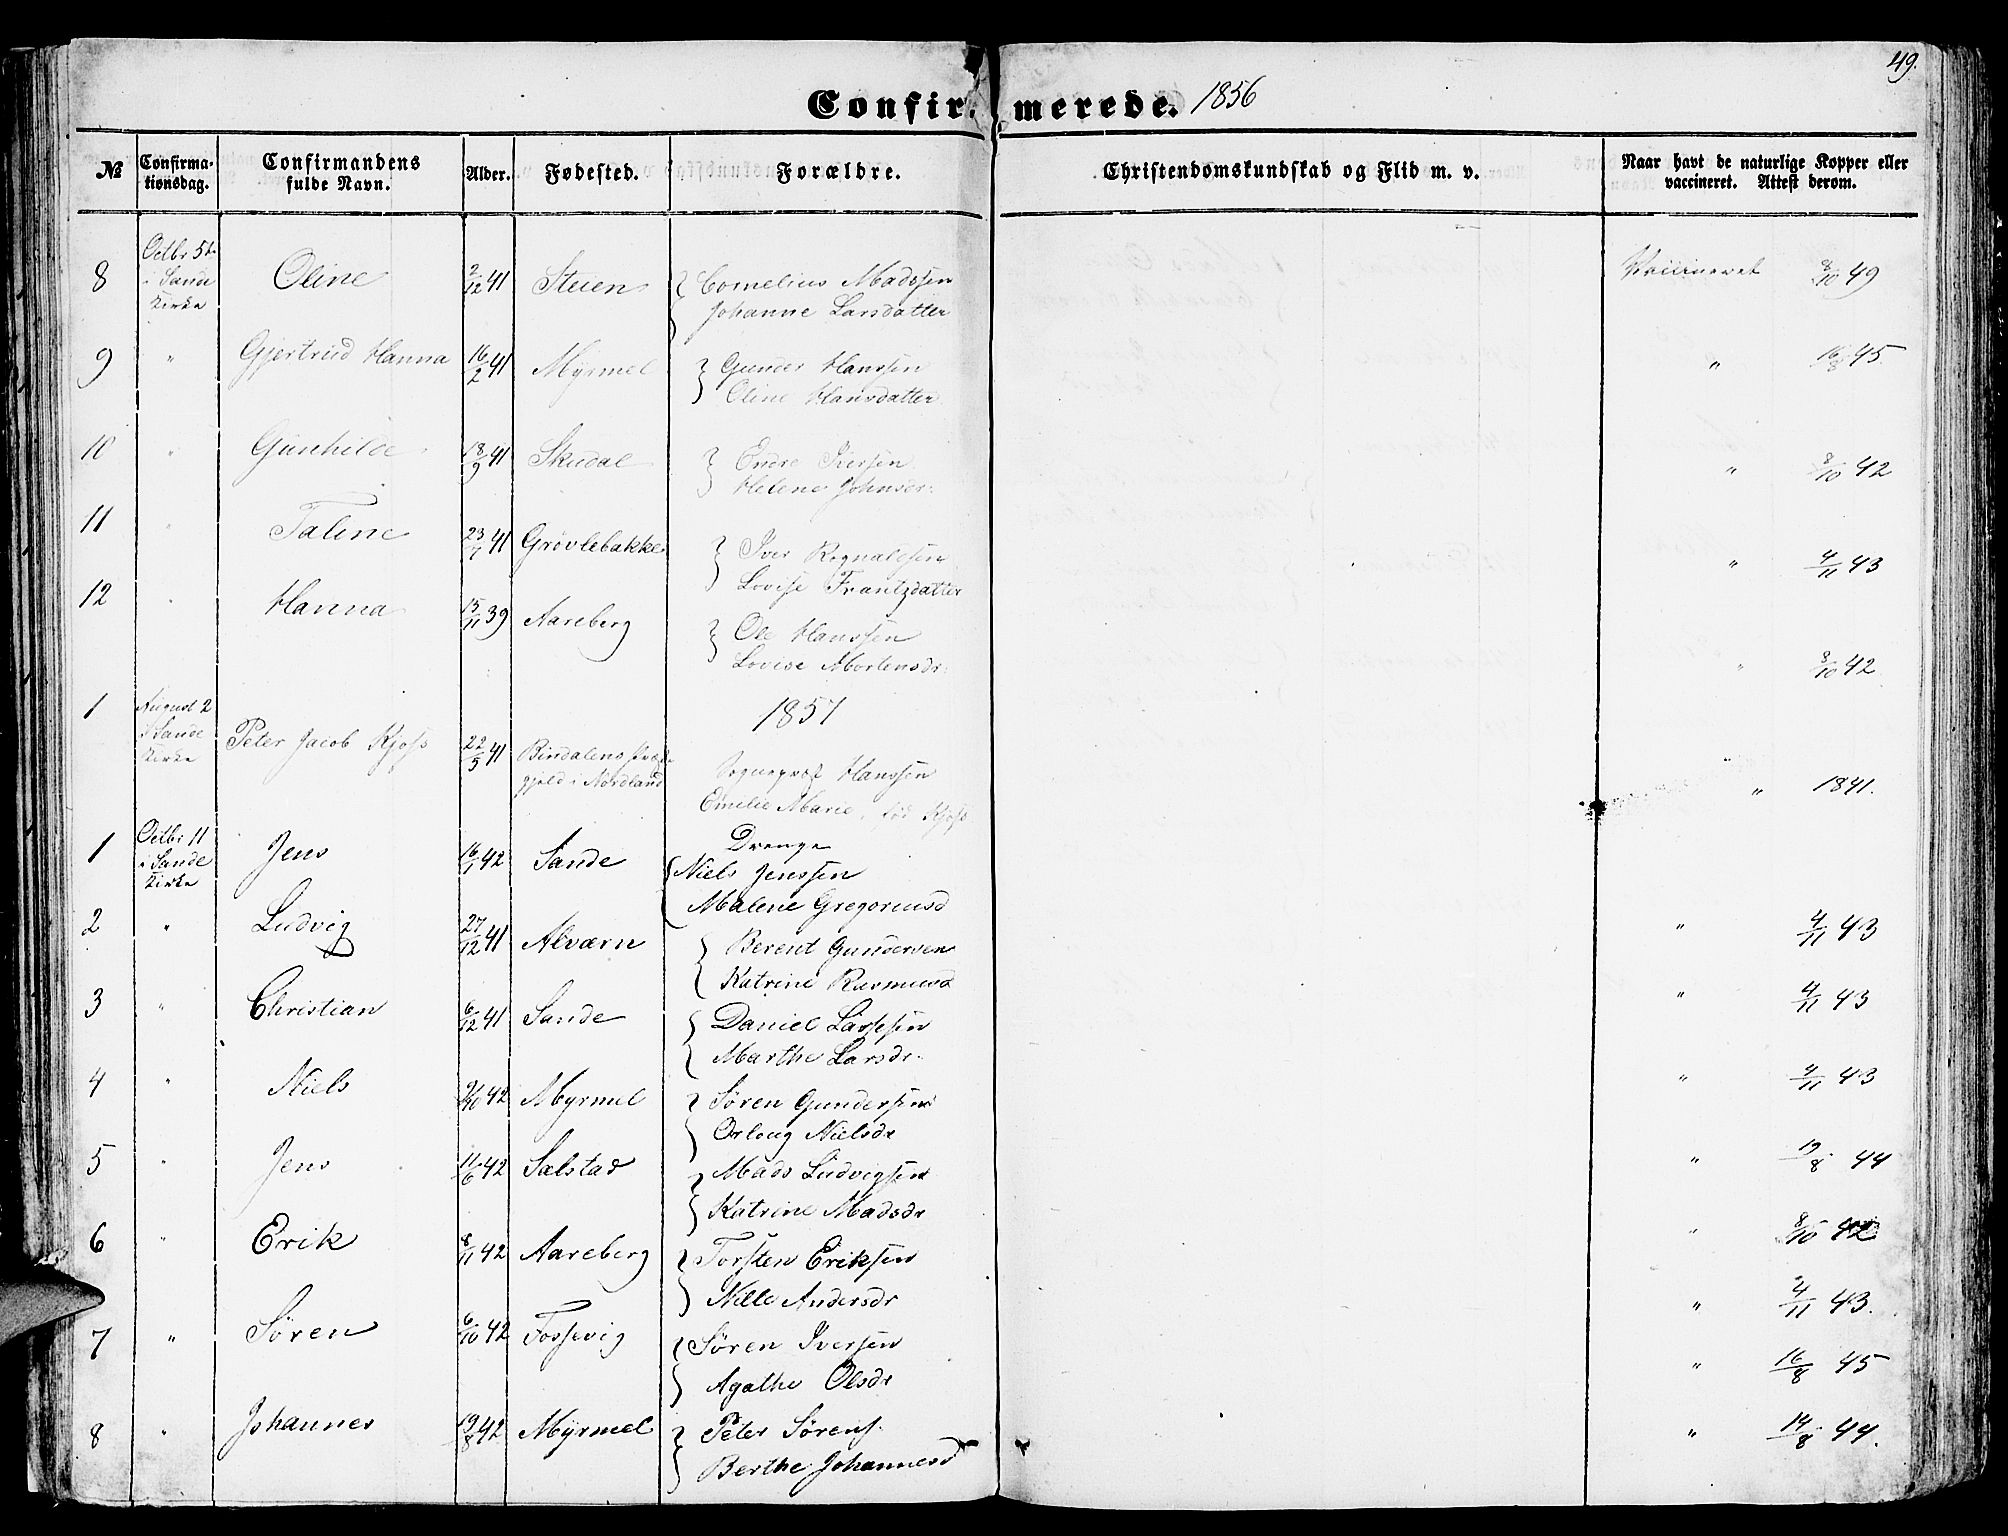 49.
Confirmerede. 1856
№ Confirma-tionsdag. Confirmandens fulde Navn. Alder. Fødested. Forældre. Christendomskundskab og Flid m. v. Naar havt de naturlige Kopper eller vaccineret. Attest derom.
8 Octbr 5te i Sande Kirke Oline 2/12 41 Steien Cornelius Madssen Vacsineret 8/10 49
Johanne Larsdatter
9 " Gjertrud Hanna 16/2 41 Myrmel Gunder Hanssen " 16/8 45.
Oline Hansdatter
10 " Gunhilde 18/9 41 Skudal Endre Iversen " 8/10 42
Helene Johnsdr.
11 " Taline 23/7 41 Grøvlebakke Iver Rognaldsen " 4/11 43
Lovise Frantzdatter
12 " Hanna 15/11 39 Aareberg Ole Hanssen " 8/10 42
Lovise Mortensdr.
1857
1 August 2 i Sande Kirke Peter Jacob Kjoss 22/5 41 Bindalens Præstegjeld i Nordland Sognepræst Hanssen " 1841.
Emilie Marie, fød Kjoss
Drenge
1 Octbr 11 i Sande Kirke Jens 16/1 42 Sande Niels Jenssen
Malene Gregoriusd
2 " Ludvig 27/12 41 Alværn Berent Gundersen " 4/11 43
Katrine Rasmusd
3 " Christian 6/12 41 Sande Daniel Larssen " 4/11 43
Marthe Larsdr.
4 " Niels 9/10 42 Myrmel Søren Gundersen " 4/11 43
Orloug Nielsdr
5 " Jens 11/6 42 Sælstad Mads Ludvigsen " 19/8 44
Katrine Madsdr
6 " Erik 8/11 42 Aareberg Torsten Eriksen " 8/10 42
Nille Andersdr
7 " Søren 6/10 42 Fossevig Søren Iversen " 4/11 43.
Agathe Olsdr " 16/8 45
8 " Johannes 19/8 42 Myrmel Peter Sørens. " 14/8 44.
Berthe Johannesd